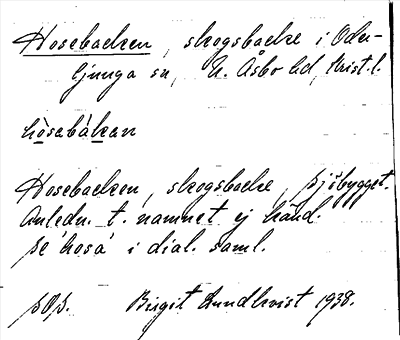 Hosebacken, skogsbacke i Oder-
ljunga sn, N. Åsbo hd, Krist. l.
hòsabákan
Hosebacken, skogsbacke, sjöbygget.
Anledn. t. namnet ej känd.
se hosa i dial. saml.
Birgit Lundkvist 1938.